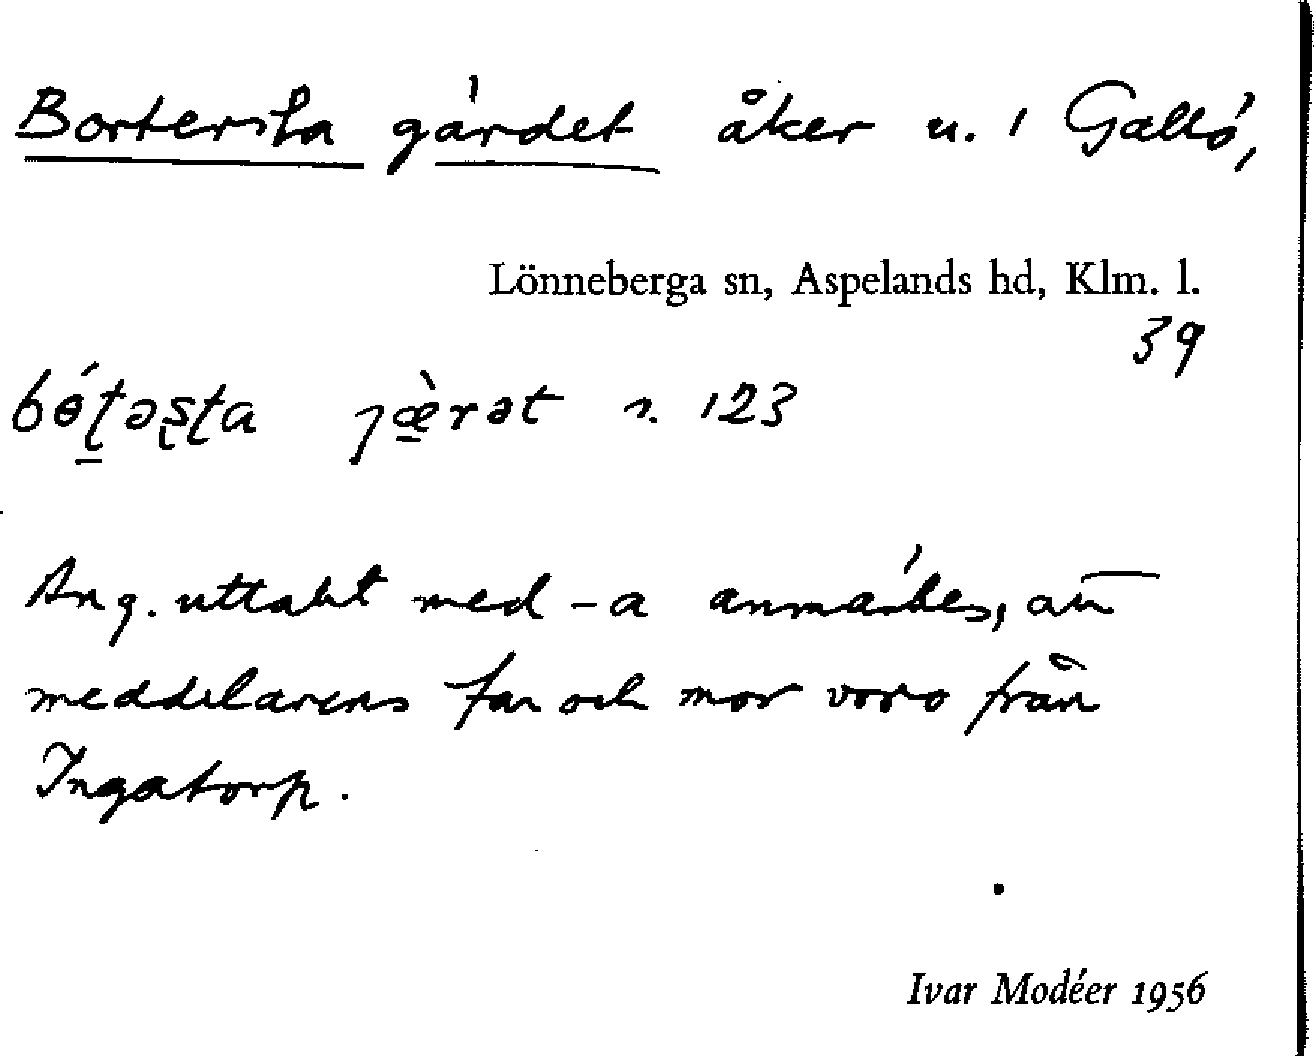 Bortersta gärdet åker u. 1 Gallö,
Lönneberga sn, Aspelands hd, Klm. l.
39
bɵ́ʈəʂʈa ȷæ̀rət r. 123
Ang. uttalet med -a anmärkes, att
meddelarens far och mor voro från
Ingatorp.
Ivar Modéer 1956